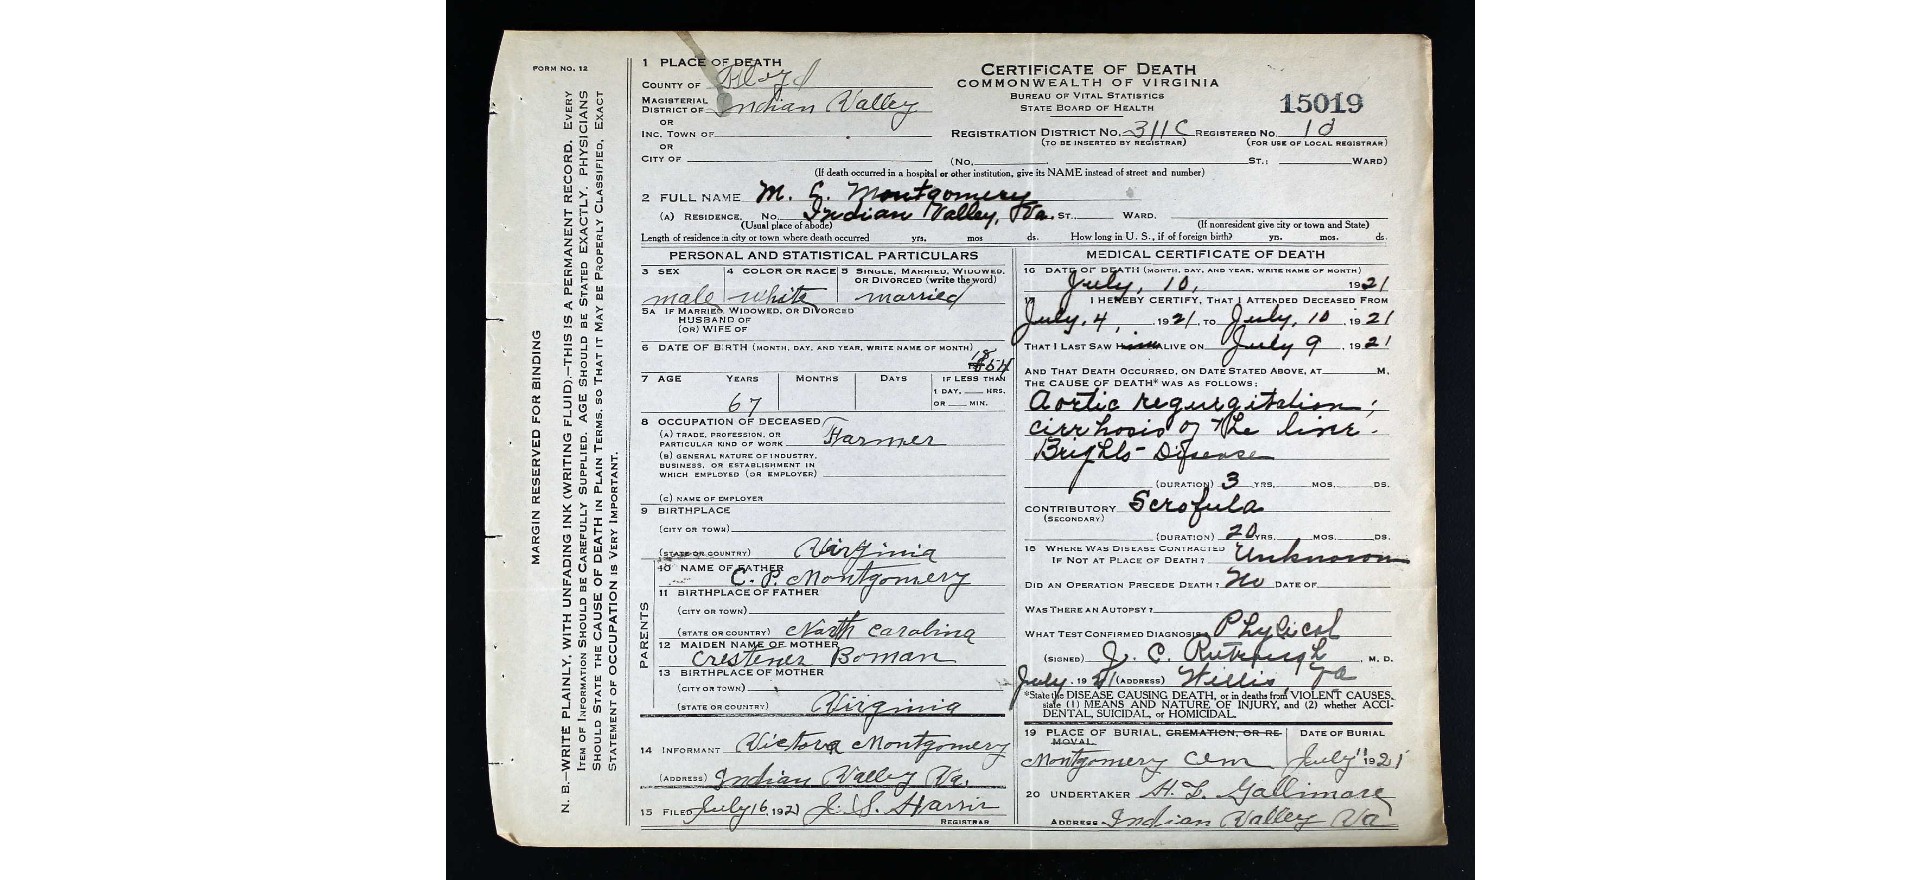 FORM NO. 12
MARGIN RESERVED FOR BINDING
N. B.—WRITE PLAINLY, WITH UNFADING INK (WRITING FLUID).—THIS IS A PERMANENT RECORD. EVERY
ITEM OF INFORMATION SHOULD BE CAREFULLY SUPPLIED. AGE SHOULD BE STATED EXACTLY. PHYSICIANS
SHOULD STATE THE CAUSE OF DEATH IN PLAIN TERMS, SO THAT IT MAY BE PROPERLY CLASSIFIED. EXACT
STATEMENT OF OCCUPATION IS VERY IMPORTANT.
1 PLACE OF DEATH
COUNTY OF Floyd
MAGISTERIAL DISTRICT OF Indian Valley
OR
INC. TOWN OF
OR
CITY OF
CERTIFICATE OF DEATH
COMMONWEALTH OF VIRGINIA
BUREAU OF VITAL STATISTICS
STATE BOARD OF HEALTH
15019
REGISTRATION DISTRICT NO. 311C REGISTERED NO. 10
(TO BE INSERTED BY REGISTRAR) (FOR USE OF LOCAL REGISTRAR)
(No. ST.; WARD)
(If death occurred in a hospital or other institution, give its NAME instead of street and number)
2 FULL NAME M. G. Montgomery
(A) RESIDENCE. No. Indian Valley, Va. ST. WARD.
(Usual place of abode) (If nonresident give city or town and State)
Length of residence in city or town where death occurred yrs. mos ds. How long in U. S., if of foreign birth? yrs. mos. ds.
PERSONAL AND STATISTICAL PARTICULARS
3 SEX
male
4 COLOR OR RACE
white
5 SINGLE, MARRIED, WIDOWED, OR DIVORCED (write the word)
married
5A IF MARRIED, WIDOWED, OR DIVORCED
HUSBAND OF
(OR) WIFE OF
6 DATE OF BIRTH (MONTH, DAY, AND YEAR, WRITE NAME OF MONTH)
1854
7 AGE YEARS MONTHS DAYS IF LESS THAN
1 DAY, HRS.
OR MIN.
67
8 OCCUPATION OF DECEASED
(A) TRADE, PROFESSION, OR
PARTICULAR KIND OF WORK Farmer
(B) GENERAL NATURE OF INDUSTRY,
BUSINESS, OR ESTABLISHMENT IN
WHICH EMPLOYED (OR EMPLOYER)
(C) NAME OF EMPLOYER
9 BIRTHPLACE
(CITY OR TOWN)
(STATE OR COUNTRY) Virginia
PARENTS
10 NAME OF FATHER
C. P. Montgomery
11 BIRTHPLACE OF FATHER
(CITY OR TOWN)
(STATE OR COUNTRY) North Carolina
12 MAIDEN NAME OF MOTHER
Crestener Boman
13 BIRTHPLACE OF MOTHER
(CITY OR TOWN)
(STATE OR COUNTRY) Virginia
14 INFORMANT Victora Montgomery
(ADDRESS) Indian Valley Va.
15 FILED July 16, 1921 J. S. Harris
REGISTRAR
MEDICAL CERTIFICATE OF DEATH
16 DATE OF DEATH (MONTH, DAY, AND YEAR, WRITE NAME OF MONTH)
July, 10, 1921
17 I HEREBY CERTIFY, THAT I ATTENDED DECEASED FROM
July, 4, 1921, TO July, 10, 1921
THAT I LAST SAW him ALIVE ON July 9, 1921
AND THAT DEATH OCCURRED, ON DATE STATED ABOVE, AT M.
THE CAUSE OF DEATH* WAS AS FOLLOWS:
Aortic regurgitation;
cirrhosis of the liver.
Brights-Disease
(DURATION) 3 YRS. MOS. DS.
CONTRIBUTORY Scrofula
(SECONDARY)
(DURATION) 20 YRS. MOS. DS.
18 WHERE WAS DISEASE CONTRACTED
IF NOT AT PLACE OF DEATH? Unknown
DID AN OPERATION PRECEDE DEATH? No DATE OF
WAS THERE AN AUTOPSY?
WHAT TEST CONFIRMED DIAGNOSIS Physical
(SIGNED) J. C. , M. D.
July, 1921 (ADDRESS) Willis, Va
*State the DISEASE CAUSING DEATH, or in deaths from VIOLENT CAUSES,
state (1) MEANS AND NATURE OF INJURY, and (2) whether ACCI-
DENTAL, SUICIDAL, or HOMICIDAL.
19 PLACE OF BURIAL, CREMATION, OR RE-
MOVAL
DATE OF BURIAL
Montgomery Cem July 11 1921
20 UNDERTAKER H. L. Gallimore
ADDRESS Indian Valley Va